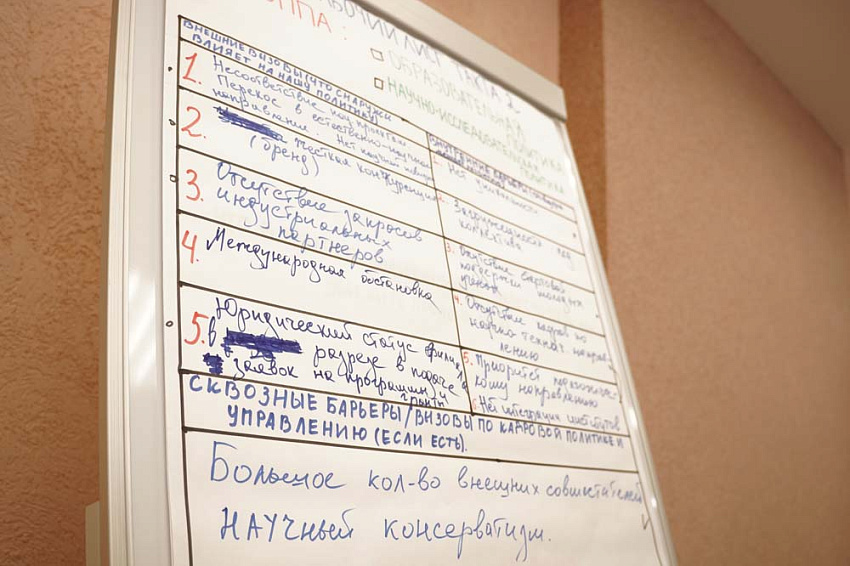 РАБОЧИЙ ЛИСТ ТАКТА 2
ГРУППА:
ОБРАЗОВАТЕЛЬНАЯ ПОЛИТИКА
НАУЧНО-ИССЛЕДОВАТЕЛЬСКАЯ ПОЛИТИКА
ВНЕШНИЕ ВЫЗОВЫ (ЧТО СНАРУЖИ
ВЛИЯЕТ НА НАШУ ПОЛИТИКУ)
1. Несоответствие нац. проектам.
Перекос в естественно-научное
направление. Нет научной
2. жесткая конкуренция
(бренд)
3. Отсутствие запросов
индустриальных
партнеров
4. Международная обстановка
5. Юридический статус филиала
в разрезе в подаче
заявок на программы и
гранты
ВНУТРЕННИЕ БАРЬЕРЫ
1. Нет
2.
коллектива
3. Отсутствие стартовой
поддержки молодых
ученых
4. Отсутствие кадров по
научно-технич. направ-
лению
5. Приоритет педагогичес-
кому направлению
6. Нет интеграции институтов
СКВОЗНЫЕ БАРЬЕРЫ/ВЫЗОВЫ ПО КАДРОВОЙ ПОЛИТИКЕ И
УПРАВЛЕНИЮ (ЕСЛИ ЕСТЬ).
Большое кол-во внешних совместителей
НАУЧНЫЙ консерватизм.